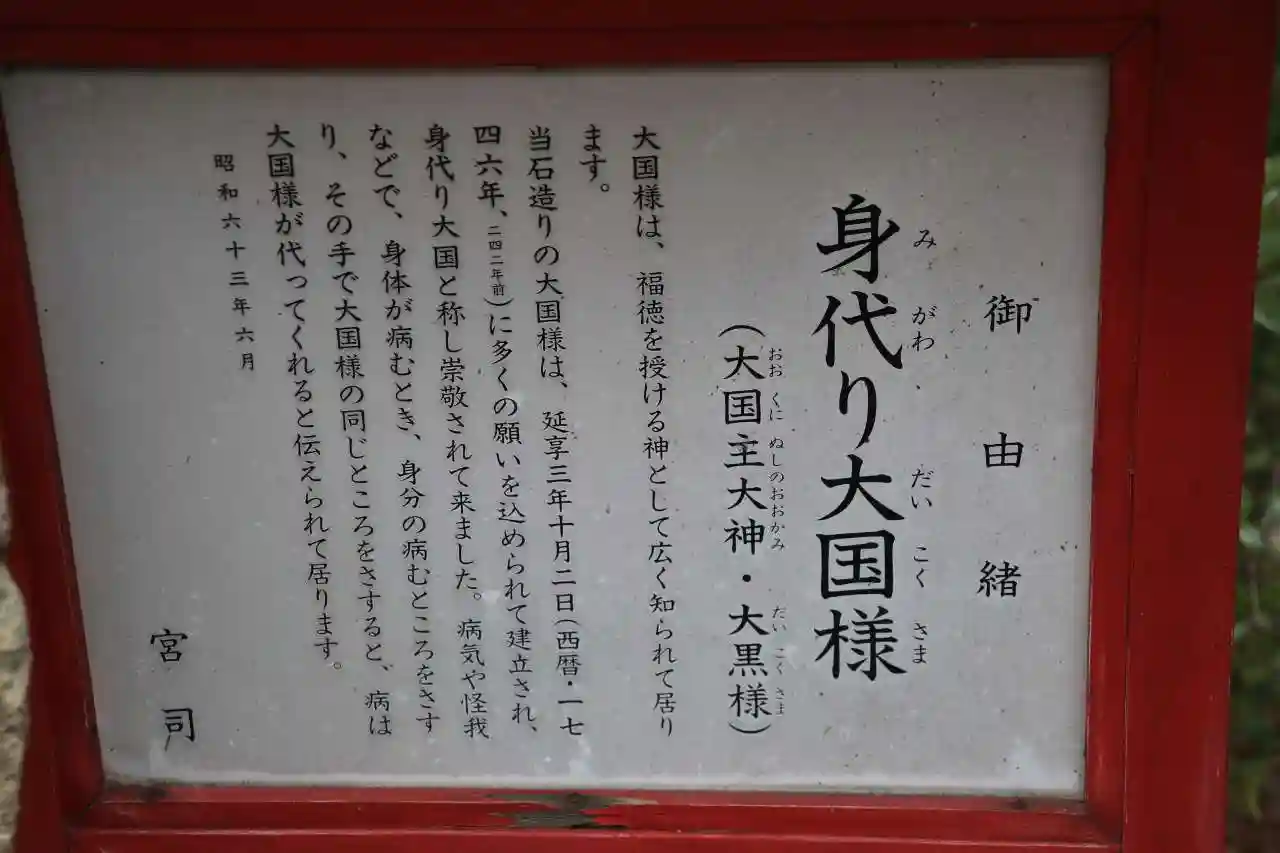 御由緒
身代り大国様
みがわ だいこくさま
(大国主大神・大黒様)
おおくにぬしのおおかみ だいこくさま
大国様は、福徳を授ける神として広く知られて居り
ます。
当石造りの大国様は、延享三年十月二日(西暦・一七
四六年、二四二年前)に多くの願いを込められて建立され、
身代り大国と称し崇敬されて来ました。病気や怪我
などで、身体が病むとき、身分の病むところをさす
り、その手で大国様の同じところをさすると、病は
大国様が代ってくれると伝えられて居ります。
昭和六十三年六月
宮司